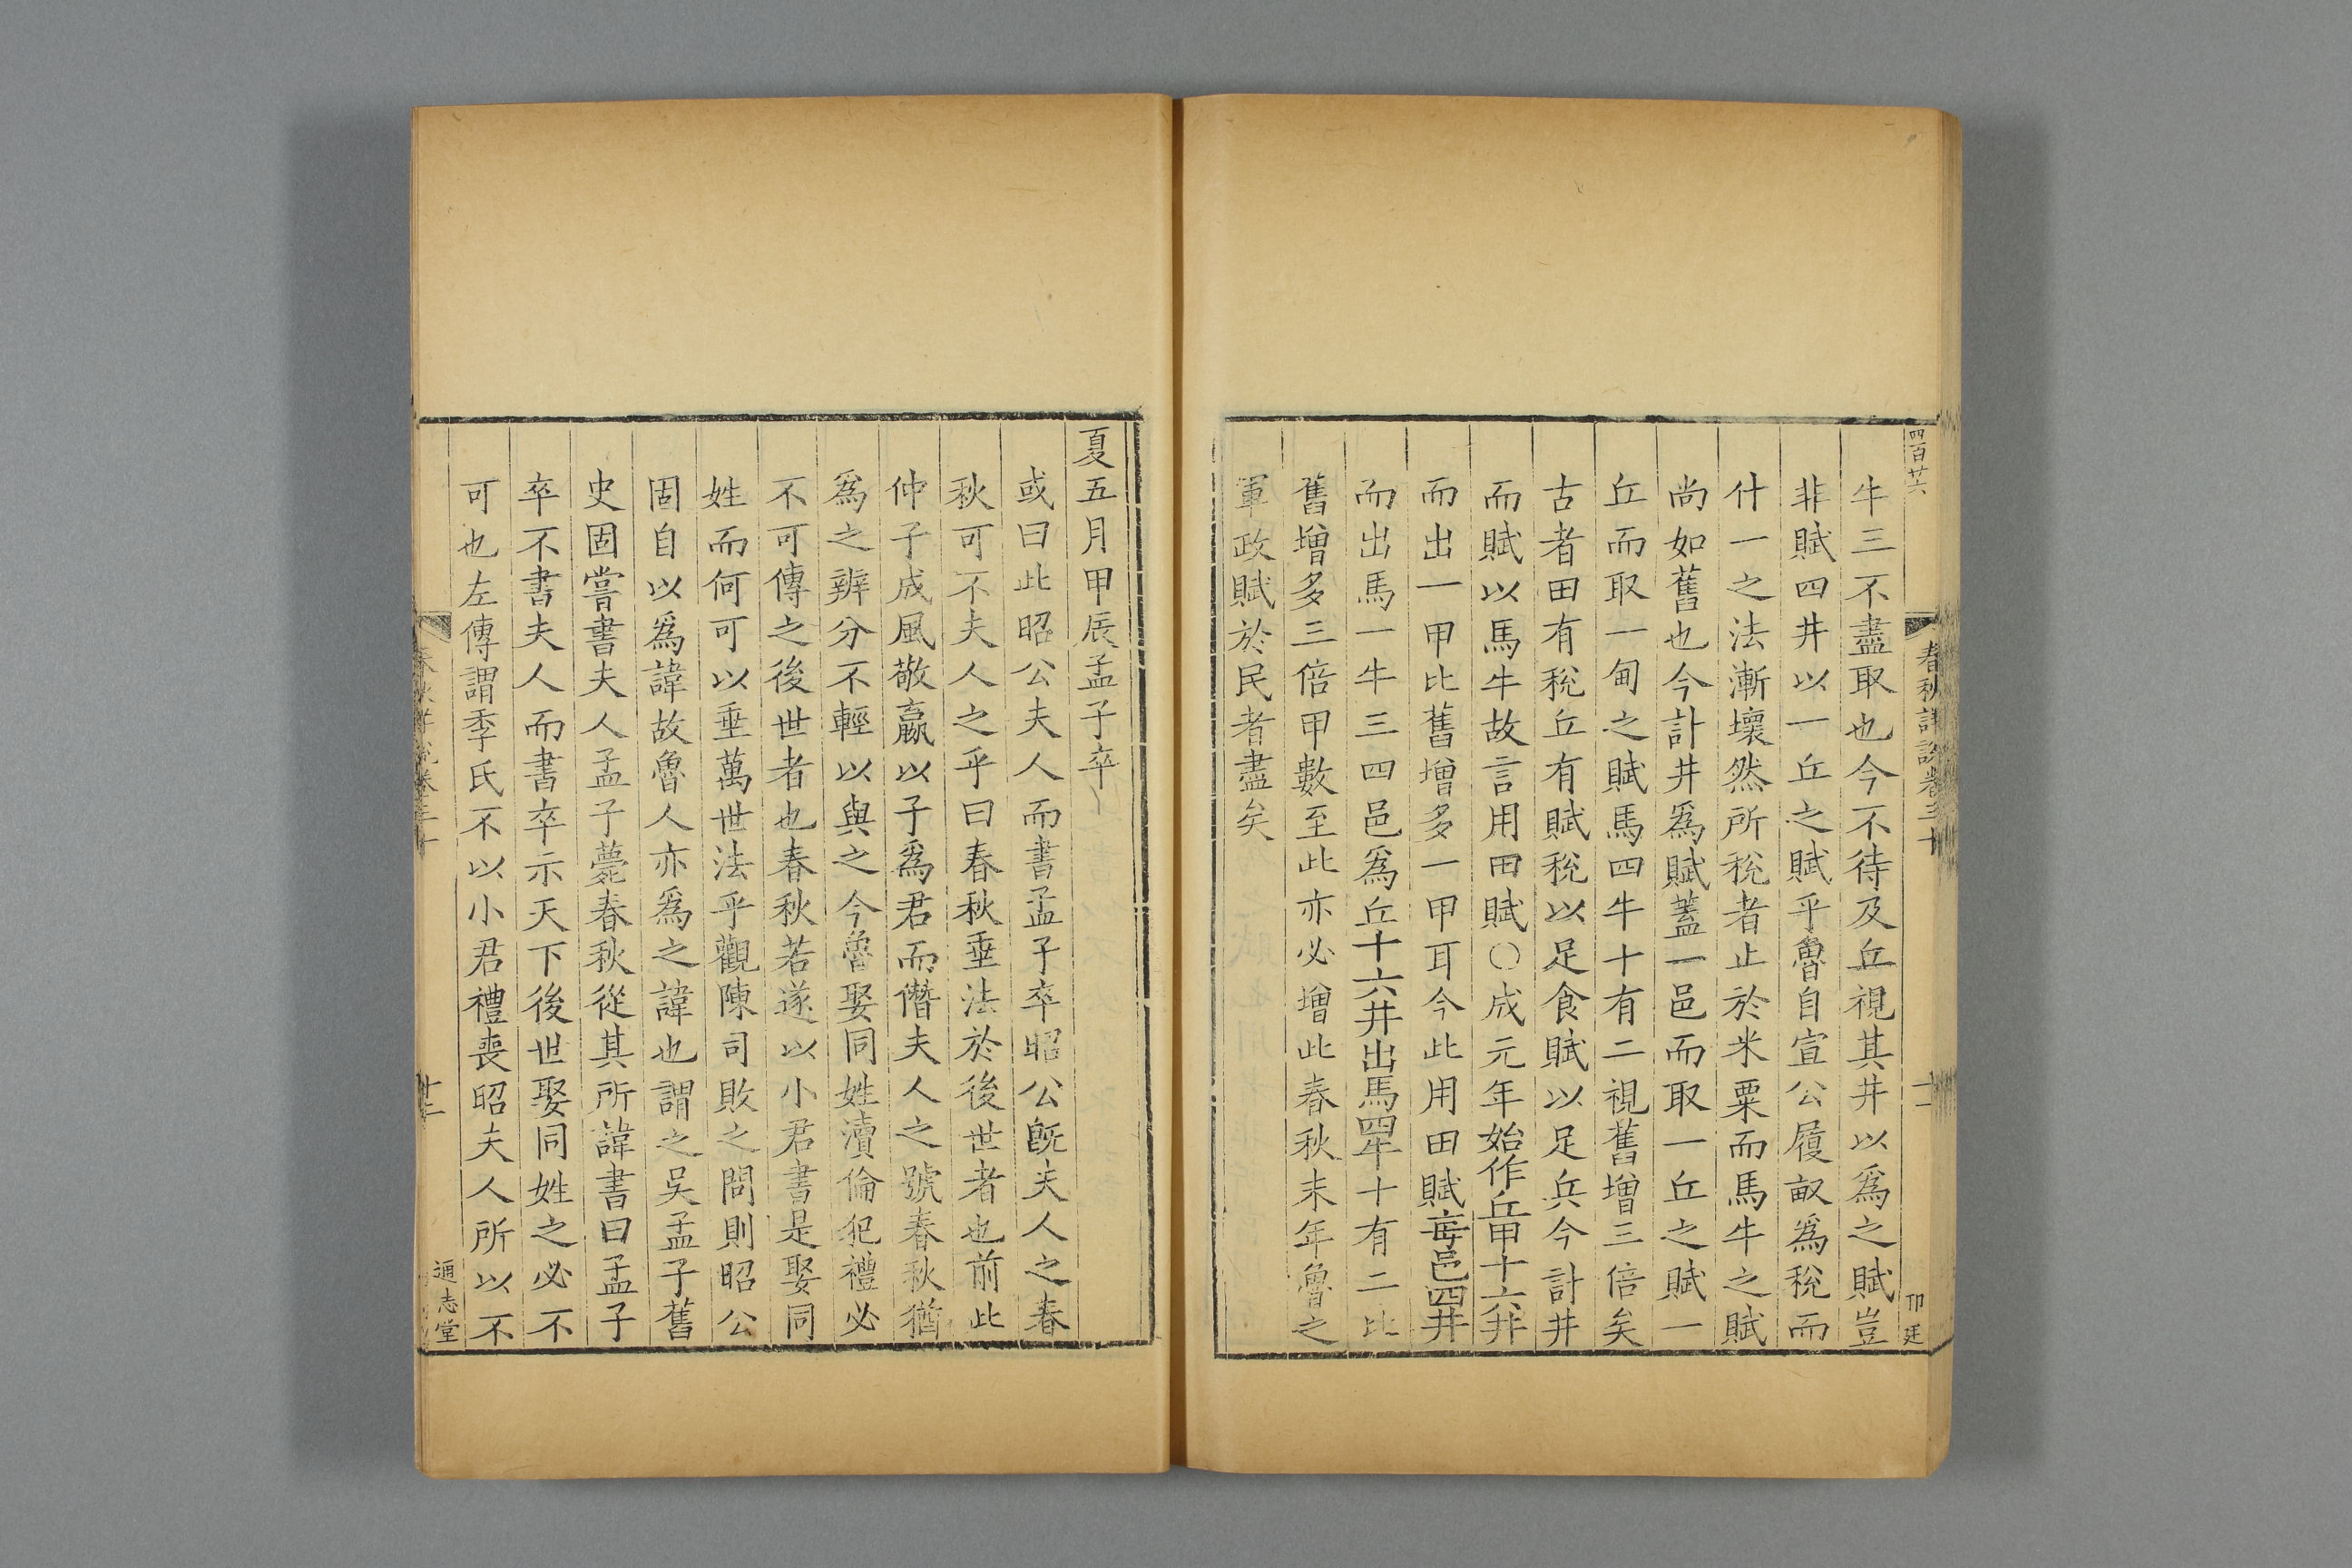 四百廿六
春秋詳說卷三十
十一
卭廷
牛三不盡取也今不待及丘視其井以爲之賦豈
非賦四井以一丘之賦乎魯自宣公履畝爲稅而
什一之法漸壞然所稅者止於米粟而馬牛之賦
尚如舊也今計井爲賦蓋一邑而取一丘之賦一
丘而取一甸之賦馬四牛十有二視舊增三倍矣
古者田有稅丘有賦稅以足食賦以足兵今計井
而賦以馬牛故言用田賦○成元年始作丘甲十六井
而出一甲比舊增多一甲耳今此用田賦每邑四井
而出馬一牛三四邑爲丘十六井出馬四牛十有二比
舊增多三倍甲數至此亦必增此春秋末年魯之
軍政賦於民者盡矣
夏五月甲辰孟子卒
或曰此昭公夫人而書孟子卒昭公旣夫人之春
秋可不夫人之乎曰春秋垂法於後世者也前此
仲子成風敬嬴以子爲君而僭夫人之號春秋猶
爲之辨分不輕以與之今魯娶同姓瀆倫犯禮必
不可傳之後世者也春秋若遂以小君書是娶同
姓而何可以垂萬世法乎觀陳司敗之問則昭公
固自以爲諱故魯人亦爲之諱也謂之吳孟子舊
史固嘗書夫人孟子薨春秋從其所諱書曰孟子
卒不書夫人而書卒示天下後世娶同姓之必不
可也左傳謂季氏不以小君禮喪昭夫人所以不
春秋詳說卷三十
十二
通志堂